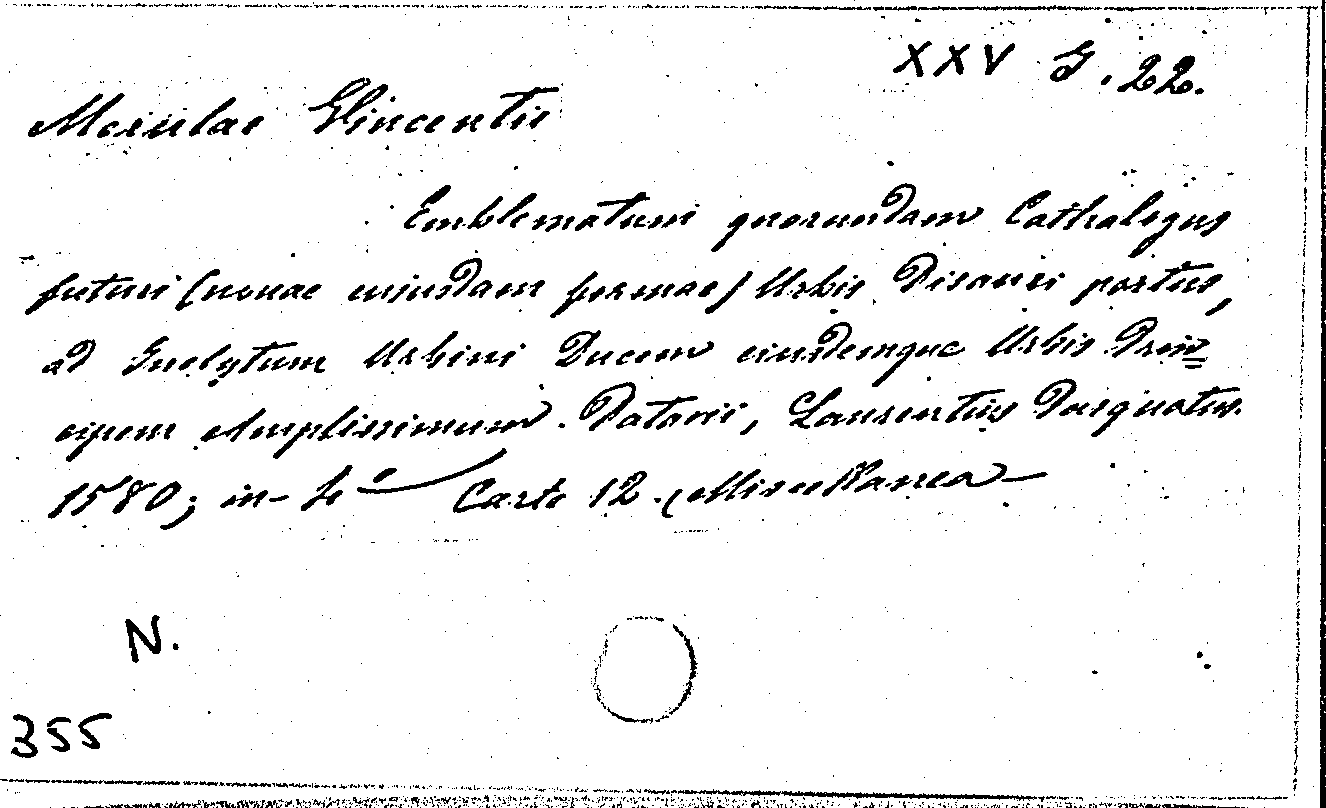 XXV G. 22.
Merulae Vincentii
Emblematum quorumdam Cathalogus
futuri (novae cuiusdam formae) Urbis Pisauri portus,
ad Inclytum Urbini Ducem eiusdemque Urbis Prin=
cipem Amplissimum. Patavii, Laurentius Pasquatus.
1580; in-4º Carte 12. (Miscellanea —
N.
355